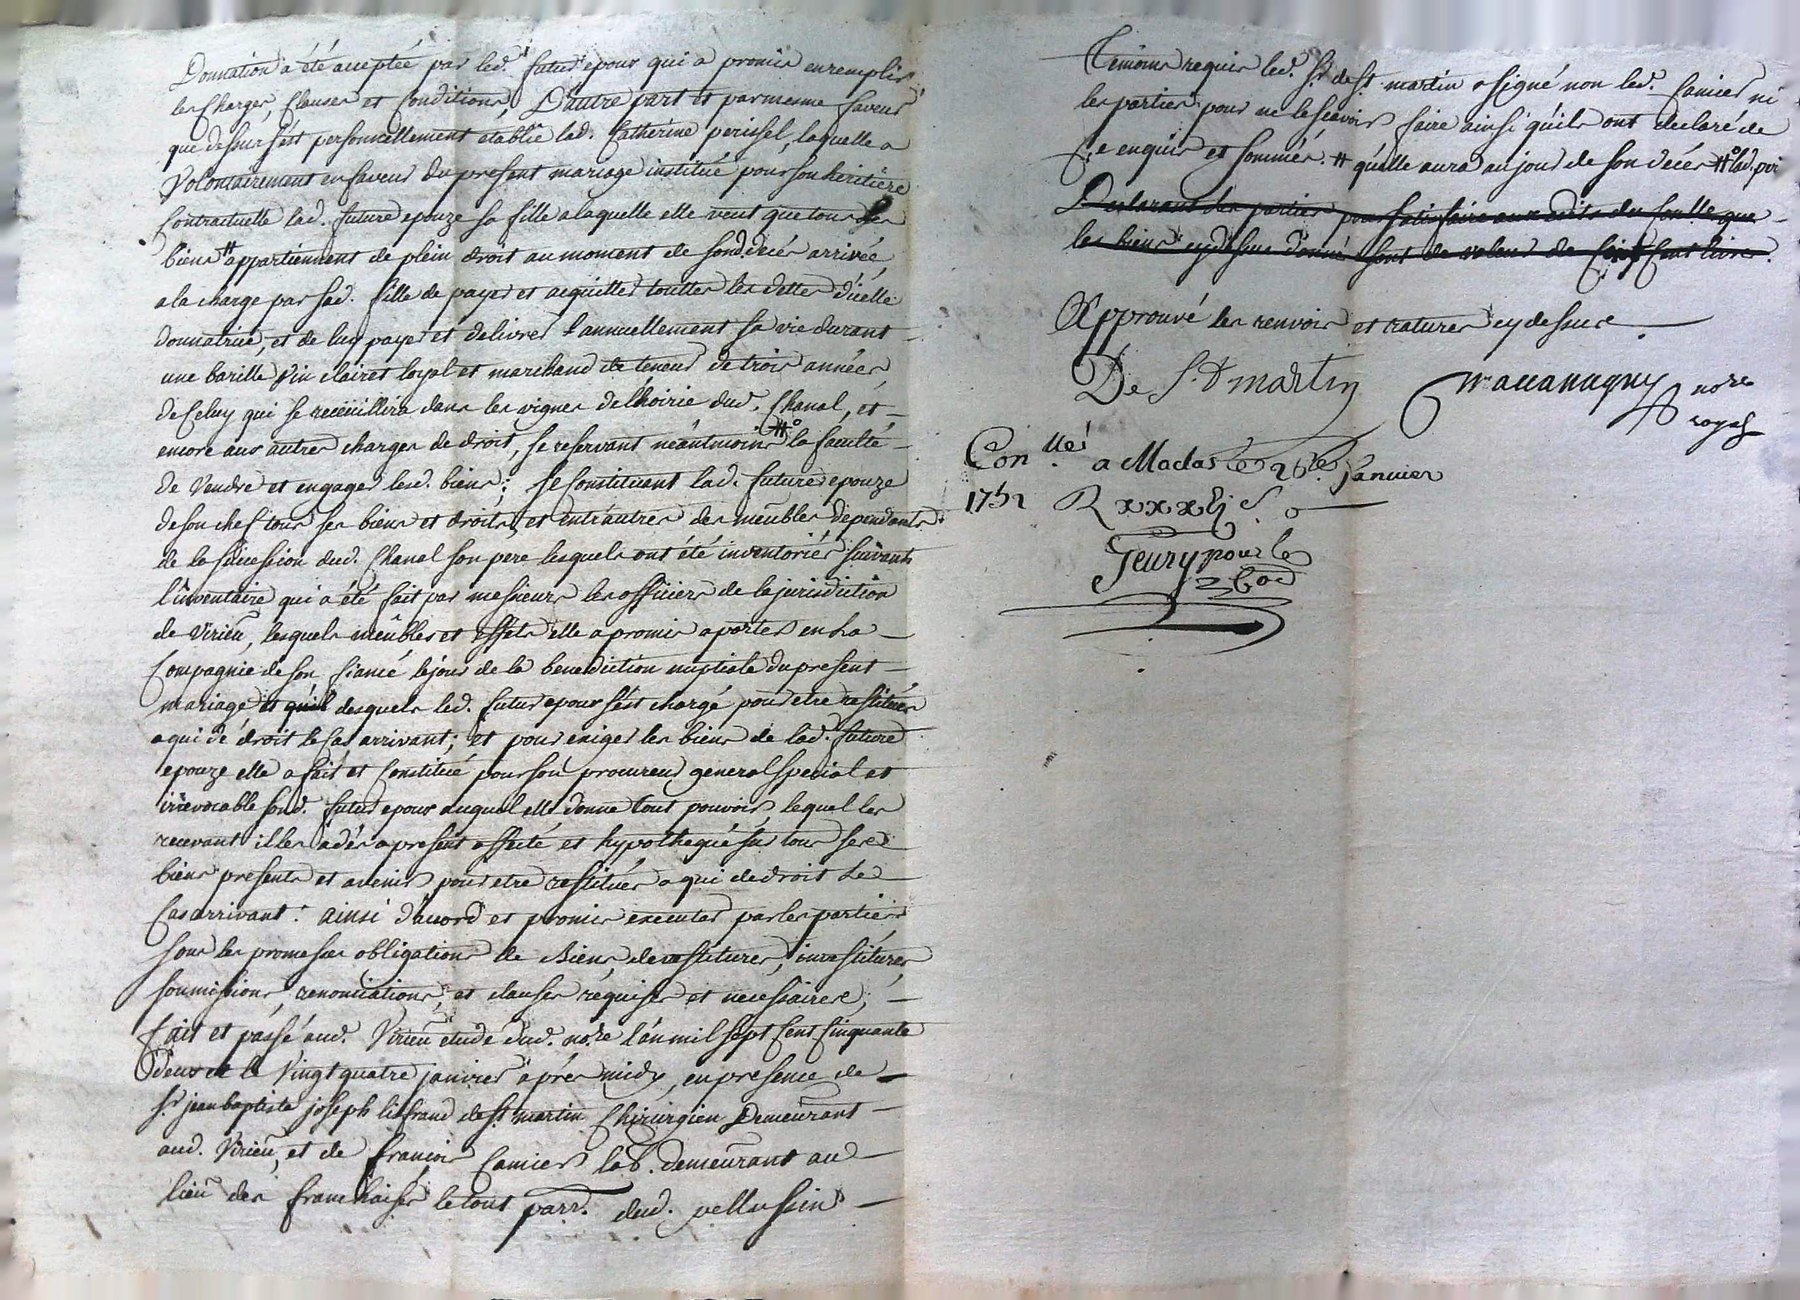 Donnation a été acceptée par led. futur epoux qui a promis en remplir
les charges, clauses et conditions, D'autre part et par mesme faveur
que dessus s'est personnellement etablie lad. Catherine perissel, laquelle a
Volontairement en faveur du present mariage institué pour son heritiere
Contractuelle lad. future epouze sa fille a laquelle elle veut que tous ses
biens # appartiennent de plein droit au moment de sond. decés arrivée,
a la charge par sad. fille de payer et acquitter touttes les dettes d'icelle
donnatrice, et de luy payer et delivrer annuellement sa vie durant
une barille Vin clairet loyal et marchand de teneur de trois années,
de Celuy qui se receuillira dans les vignes de l'hoirie dud. Chanal, et
encore aux autres charges de droit, se reservant néantmoins #° la faculté
de Vendre et engager lesd. biens; se Constituent lad. future epouze
de son chef tous ses biens et droits, et entr'autres des meubles dependants
de la sucession dud. Chanal son pere lesquels ont été inventoriés suivant
l'inventaire qui a été fait par messieurs les officiers de la jurisdiction
de Virieu, lesquels meubles et effets elle a promis aporter en la
Compagnie de son fiancé le jour de la benediction nuptiale du present
mariage desquels led. futur epoux s'est chargé pour etre restitués
a qui de droit le Cas arrivant; et pour exiger les biens de lad. future
epouze elle a fait et Constitué pour son procureur general special et
irrevocable sond. futur epoux auquel elle donne tout pouvoir lequel les
recevant il les a dés a present affecté et hypothequé sur tous ses
biens presents et avenir pour etre restitués a qui de droit le
Cas arrivant: ainsi d'accord et promis executer par les parties
sous les promesses obligations de Biens devestitures, investitures,
soumissions, renonciations, et clauses requises et necessaires;
fait et passé aud. Virieu etude dud. no.re l'an mil sept Cent Cinquante
deux et le Vingt quatre janvier aprés midy, en presence de
Sr jean baptiste joseph de St martin Chirurgien Demeurant
aud. Virieu, et de francois Camier lab. demeurant au
lieu des franchises le tout parr. dud. pellussin
Temoins requis led. Sr de St martin a signé non led. Camier ni
les parties pour ne le sçavoir faire ainsi qu'ils ont declaré de
Ce enquis et sommés. # qu'elle aura au jour de son décés #° lad. peri
Declarant les parties pour satisfaire aux droits du Conlle que
les biens cy dessus donnés sont de valeur de Cinq Cent livres.
Approuvé les renvois et ratures cy dessus
De St martin
no.re
royal
Con.llé a Maclas le 26e Janvier
1752 R xxxxij s.
Jeury pour le